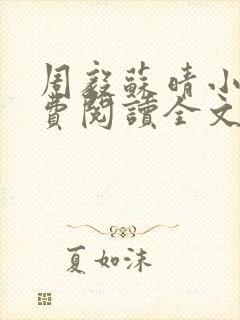 周毅蘇晴小
費閱讀全文
夏如沫